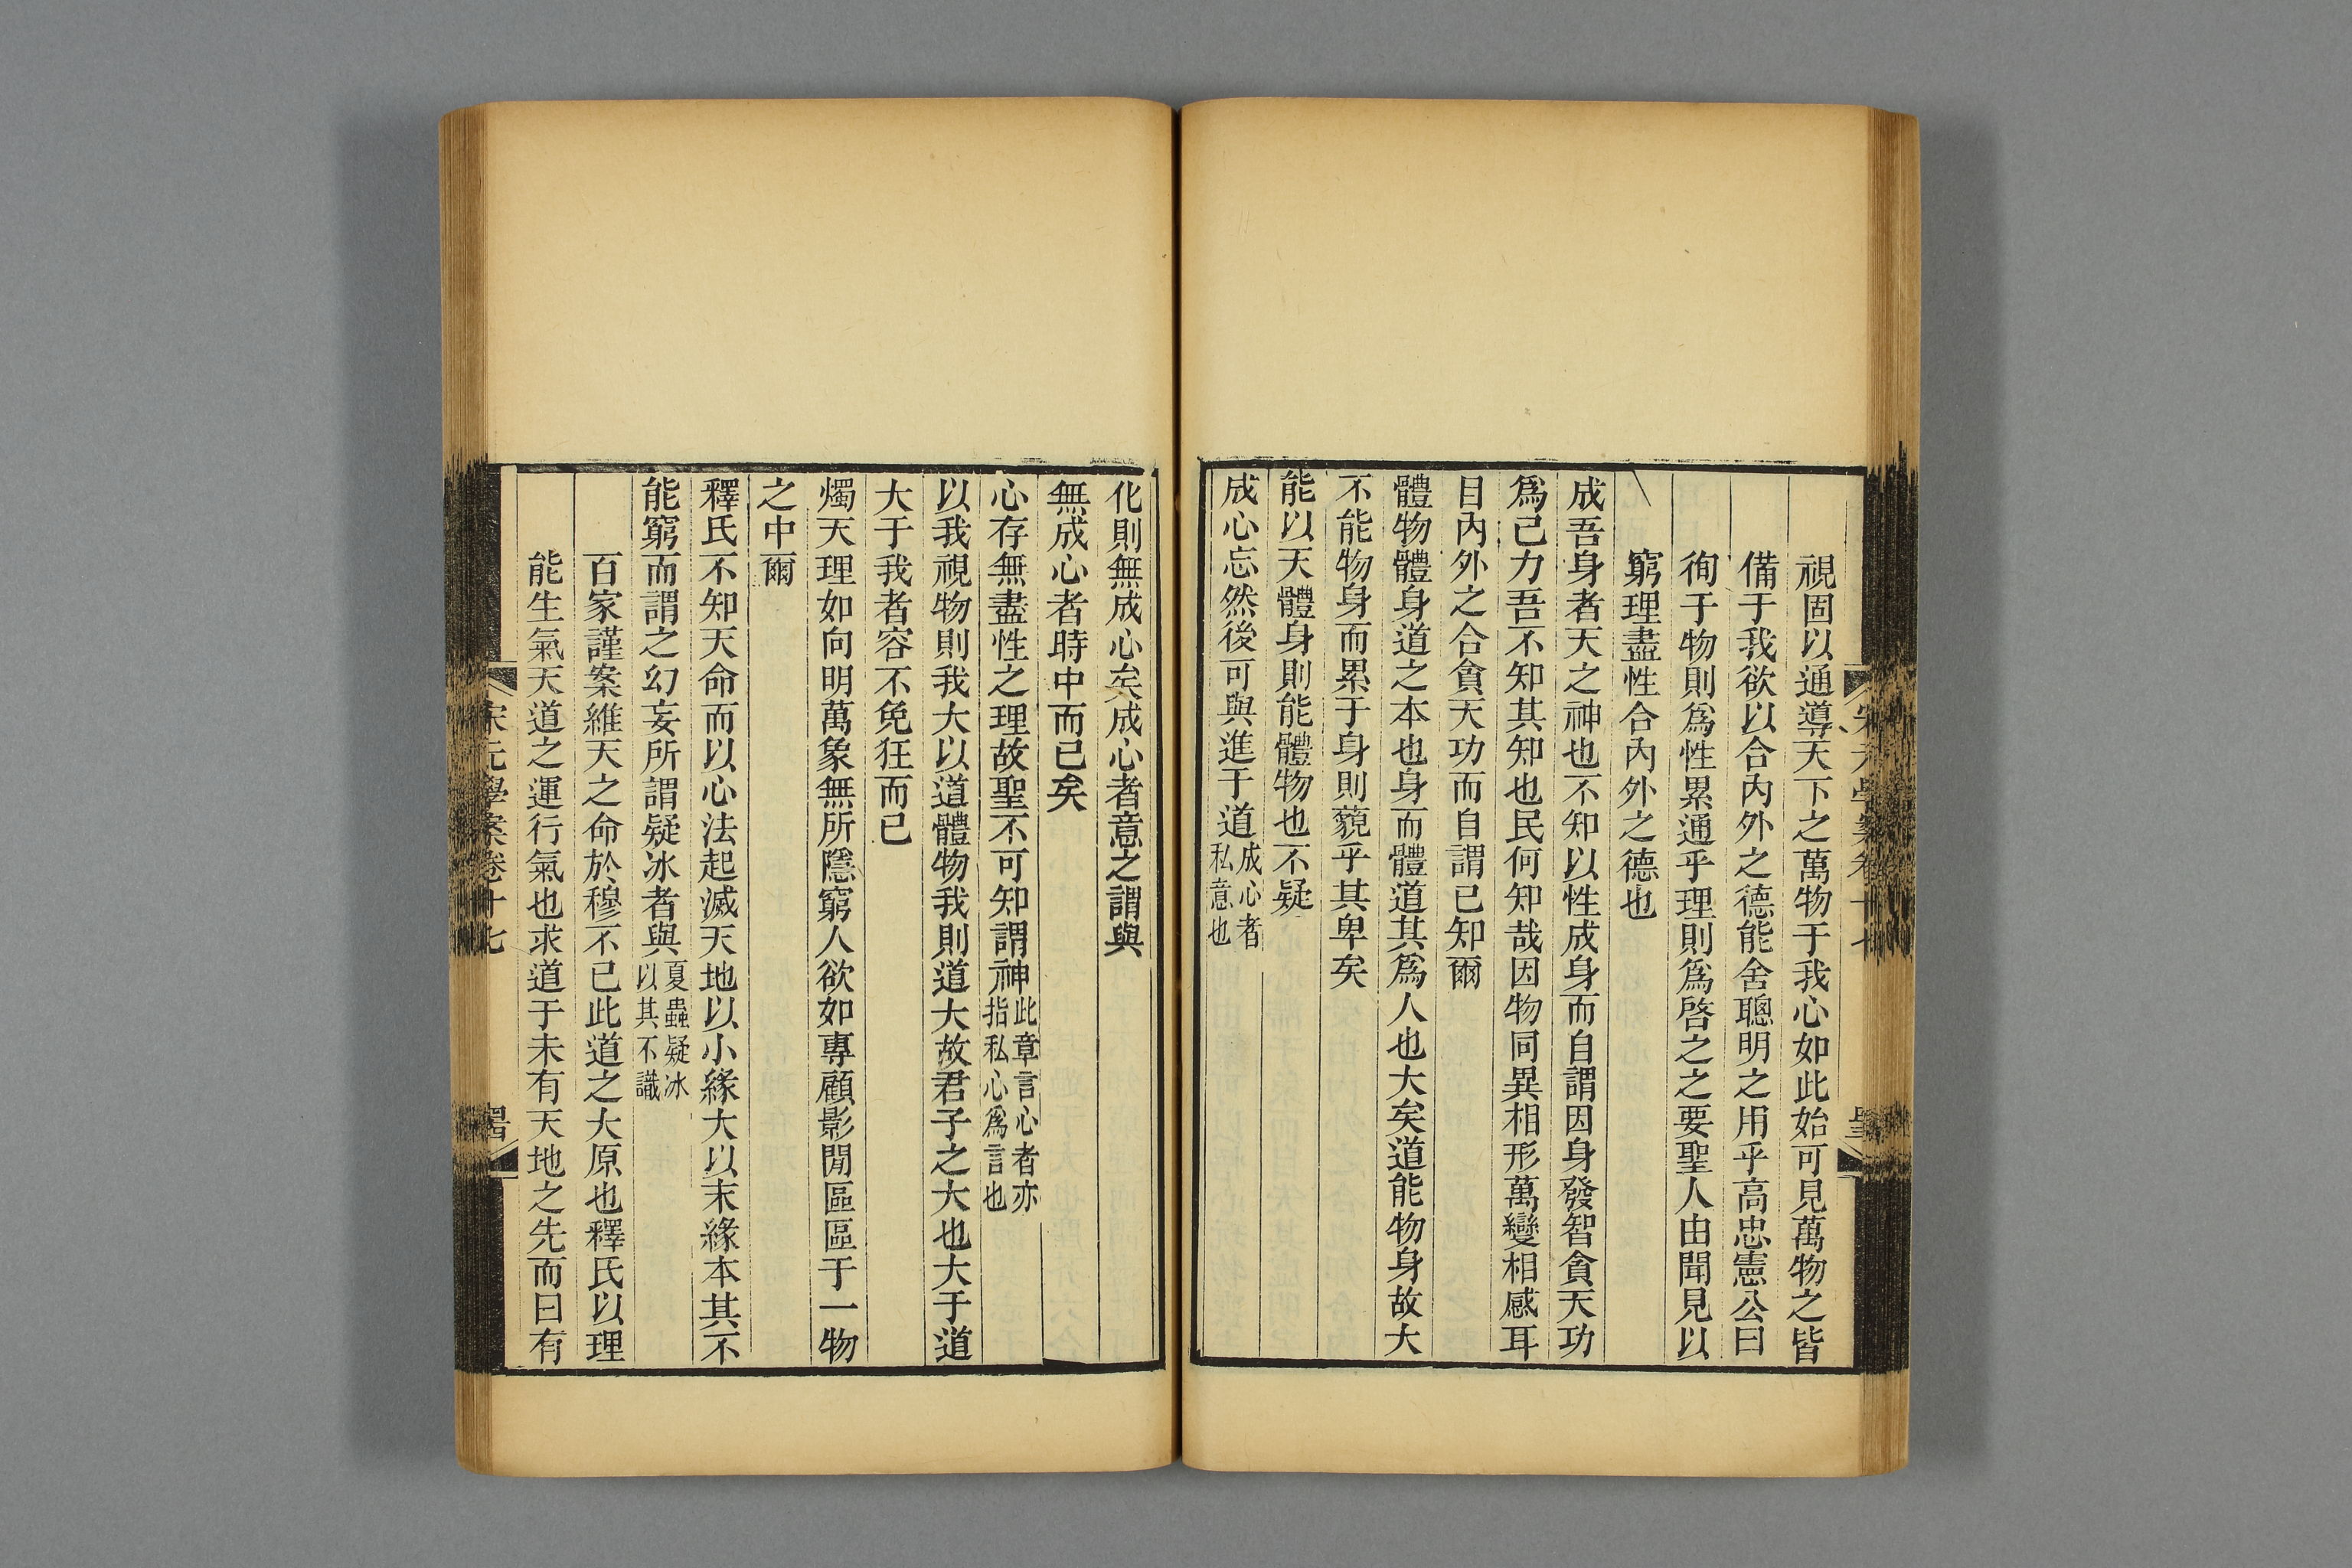 視固以通導天下之萬物于我心如此始可見萬物之皆
備于我欲以合內外之德能舍聰明之用乎高忠憲公曰
徇于物則爲性累通乎理則爲啓之之要聖人由聞見以
窮理盡性合內外之德也
成吾身者天之神也不知以性成身而自謂因身發智貪天功
爲己力吾不知其知也民何知哉因物同異相形萬變相感耳
目內外之合貪天功而自謂已知爾
體物體身道之本也身而體道其爲人也大矣道能物身故大
不能物身而累于身則藐乎其卑矣
能以天體身則能體物也不疑
成心忘然後可與進于道成心者
私意也
化則無成心矣成心者意之謂與
無成心者時中而已矣
心存無盡性之理故聖不可知謂神此章言心者亦
指私心爲言也
以我視物則我大以道體物我則道大故君子之大也大于道
大于我者容不免狂而已
燭天理如向明萬象無所隱窮人欲如專顧影閒區區于一物
之中爾
釋氏不知天命而以心法起滅天地以小緣大以末緣本其不
能窮而謂之幻妄所謂疑冰者與夏蟲疑冰
以其不識
百家謹案維天之命於穆不已此道之大原也釋氏以理
能生氣天道之運行氣也求道于未有天地之先而曰有
宋元學案卷十七